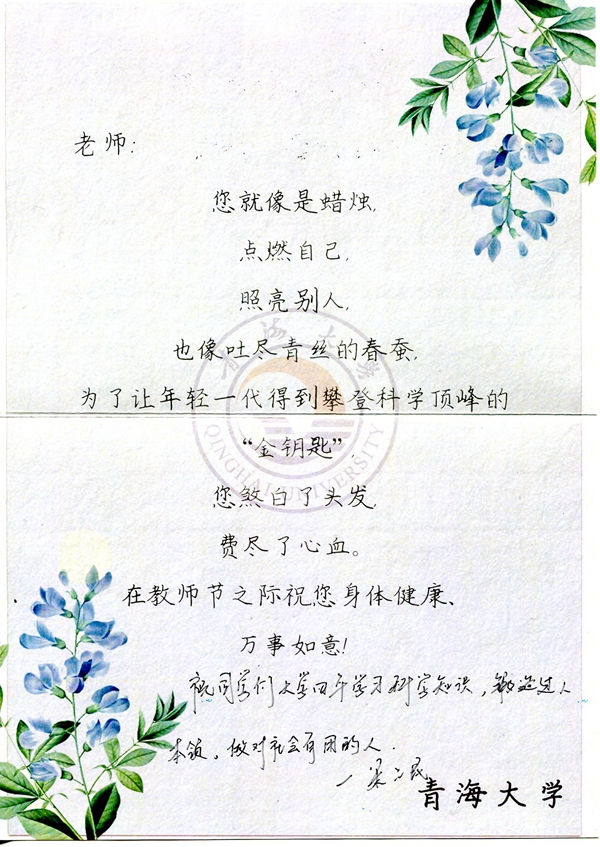 老师:
您就像是蜡烛,
点燃自己,
照亮别人,
也像吐尽青丝的春蚕,
为了让年轻一代得到攀登科学顶峰的
“金钥匙”,
您煞白了头发,
费尽了心血。
在教师节之际祝您身体健康、
万事如意!
祝同学们大学四年学习科学知识,锻造过人
本领,做对社会有用的人.
青海大学
青海大學
QINGHAI UNIVERSITY